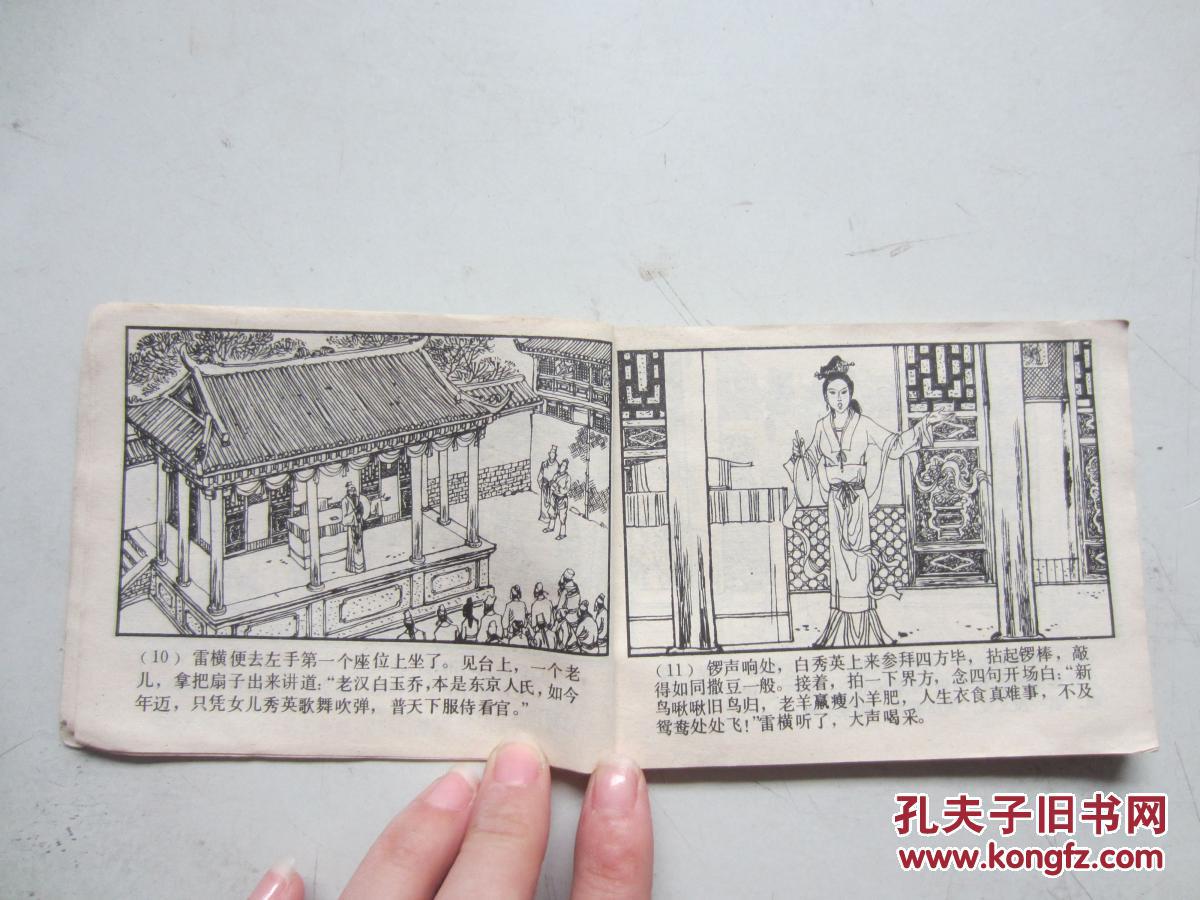 (10) 雷横便去左手第一个座位上坐了。见台上，一个老
儿，拿把扇子出来讲道：“老汉白玉乔，本是东京人氏，如今
年迈，只凭女儿秀英歌舞吹弹，普天下服侍看官。”
(11) 锣声响处，白秀英上来参拜四方毕，拈起锣棒，敲
得如同撒豆一般。接着，拍一下界方，念四句开场白：“新
鸟啾啾旧鸟归，老羊羸瘦小羊肥，人生衣食真难事，不及
鸳鸯处处飞！”雷横听了，大声喝采。
孔夫子旧书网
www.kongfz.com